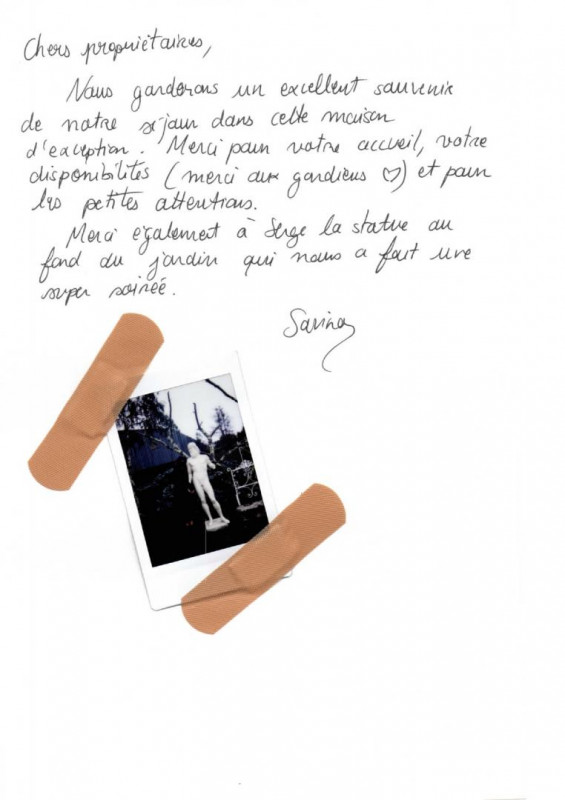 Chers propriétaires,
Nous garderons un excellent souvenir
de notre séjour dans cette maison
d'exception. Merci pour votre accueil, votre
disponibilités (merci aux gardiens ♡) et pour
les petites attentions.
Merci également à Serge la statue au
fond du jardin qui nous a fait une
super soirée.
Savina